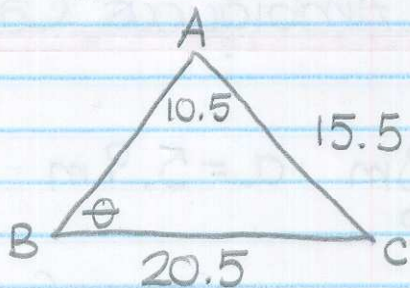 A
10.5
15.5
θ
B
C
20.5